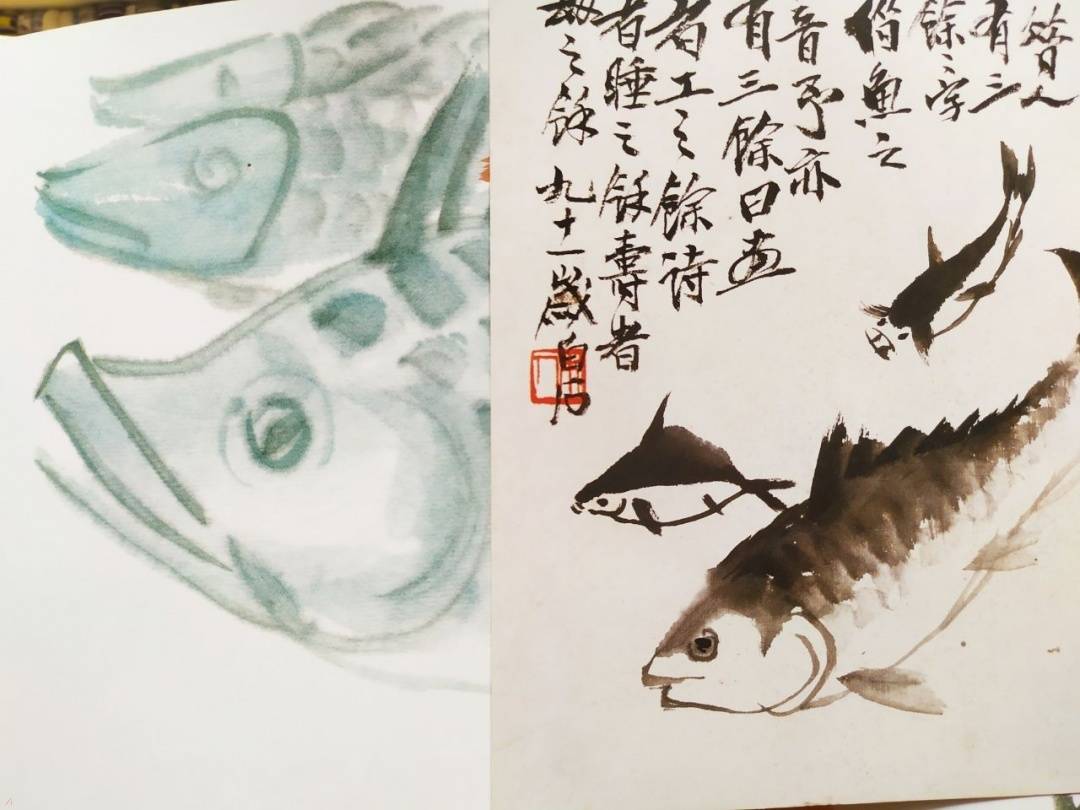 昔人
有三
餘之字
借魚之
音予亦
有三餘曰画
者工之餘詩
者睡之餘壽者
劫之餘 九十一歲白石